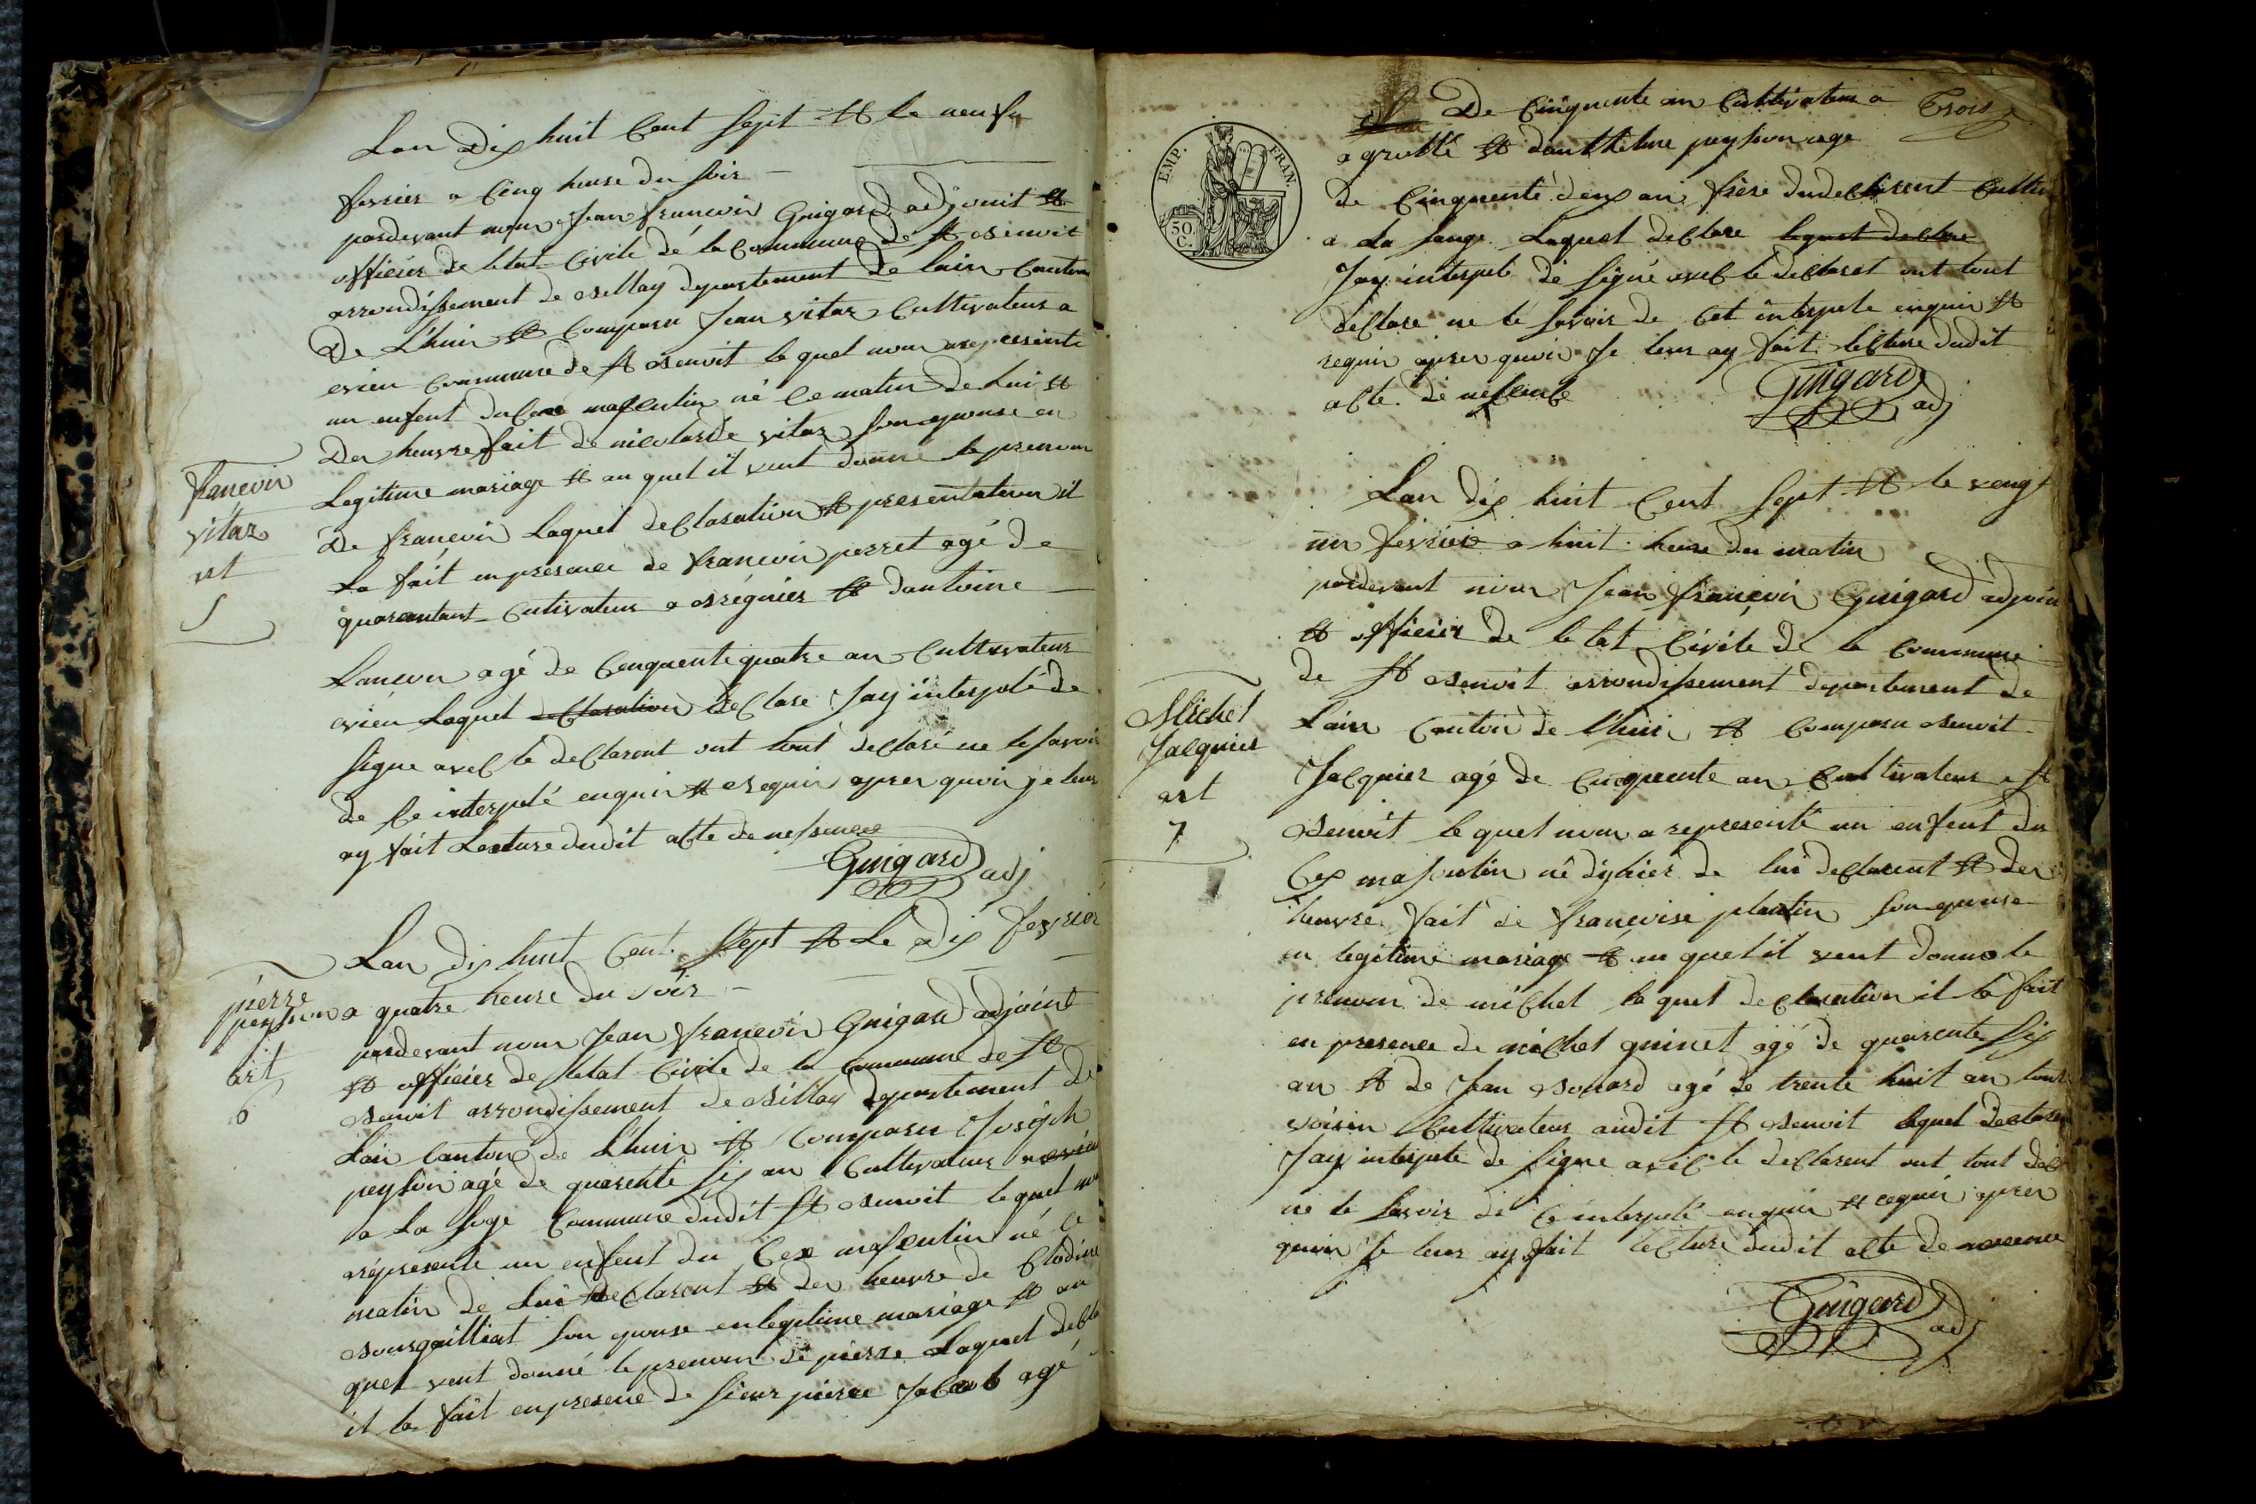 Lan dix huit Cent Sept et le neuf
fevrier a Cinq heure du soir
pardevant nous Jean francois Guigard adjouit et
officier de letat Civile dé la Commune de st benoit
arrondissement de bellay departement de lain Canton
De Lhuis et Comparu Jean vitaz Cultivateur a
evieu Commune de st benoit lequel nous a represinté
un enfent du masculin né Ce matin de lui et
Der heuvre fait de nicolarde vitaz son epouse en
Legitime mariage et au quel il veut donné le prenom
De francois Laquel declaration et presentation il
La fait en presence de francois perret agé de
quarantant Cutivateur a bregnier et dantoine
Lancon agé de Cenquente quatre an Cultivateur
evieu Laquel declaration declare Jay interpelé de
signe avec le declarent ont tout declaré ne le savoir
de Ce interpelé enquir et requir apres quoir je leur
ay fait Lecture dudit acte de nessence
Guigard adj
francois
vitaz
art
5
Lan dix huit Cent Sept et Le dix fevrier
a quatre heure du soir
pardevant nous Jean francois Guigard adjoint
et officier de letat Civile de la Commune de st
benoit arrondissement de billay departement de
Lain Canton de Lhuis et Comparu Joseph
peysson agé de quarente six an Cultivateur
a La Sauge Commune dudit st benoit lequel nous
a represente un enfent du Cex masculin né Ce
matin de Lui declarent et der heuvre de Clodine
bourgailliat son epouse en legitime mariage et au
quel veut donné le prenom de pierre Laquel decla
il la fait en presence de sieur pierre Jacob agé
pierre
peysson
art
6
Trois
De Cinquente an Cultivateur a
a grollé et danthelme peysson age
de Cinquente deux an frere dudeclarent Cultiv
a La Sauge Laquel declare lequel declare
Jay interpelé de signé avec le declarent ont tout
declare ne le savoir de Cet interpele enquir et
requir apres quoir Je leur ay fait lecture dudit
acte de nessence
Guigard adj
EMP. FRAN.
50
C.
Lan dix huit Cent Sept et le vengt
un fevrier a huit heure du matin
pardevant nous Jean francois Guigard adjoin
et officier de letat Civile de la Commune
de st benoit arrondissement departement de
Lain Canton de Lhuis et Comparu benoit
Jacquier agé de Cinquente an Cultivateur a st
benoit lequel nous a representé un enfent du
Cex masculin né dyhier de lui declarent et der
heuvre fait de francoise plantin son epouse
en legitime mariage et au quel il veut donné le
prenom de michel laquel declaration il la fait
en presence de michel guinet agé de quarente six
an et de Jean bonard agé de trente huit an tout
voisin Cultivateur audit st benoit lequel declare
Jay interpelé de signe avec le declarent ont tout decl
ne le savoir de Ce interpelé enquir et requir apres
quoir Je leur ay fait lecture dudit acte de nessence
Guigard adj
Michel
Jacquier
art
7